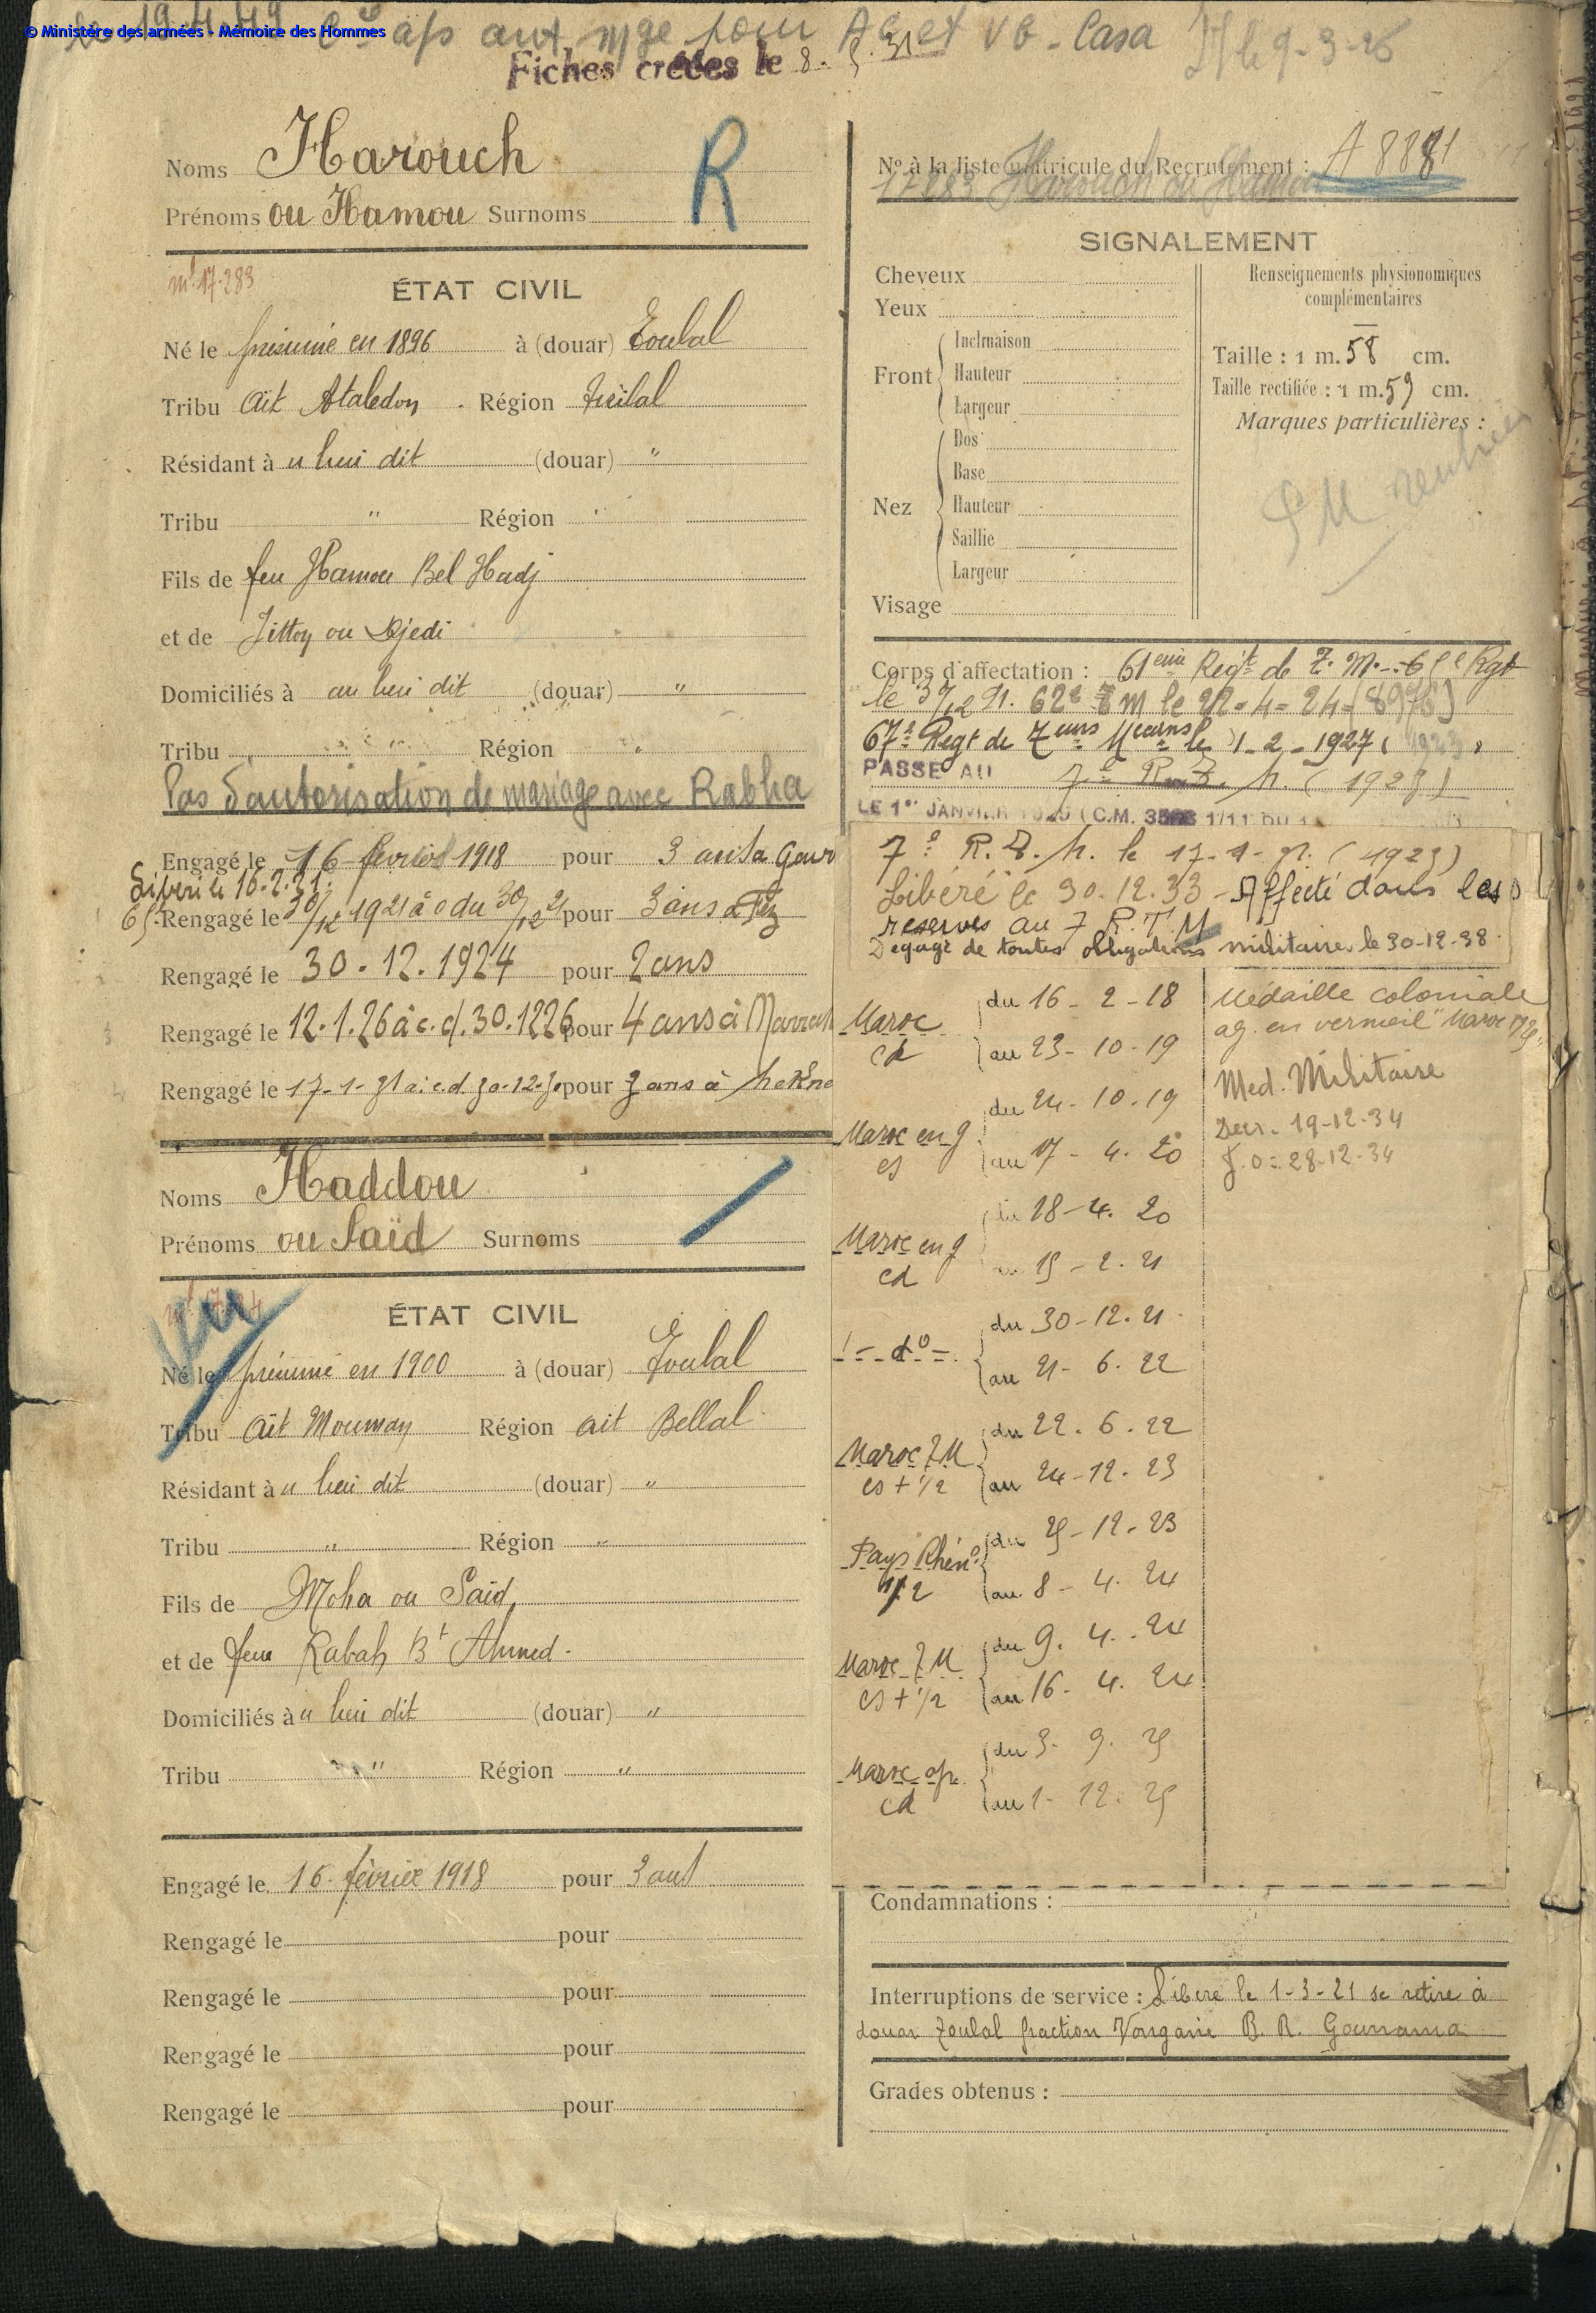 © Ministère des armées - Mémoire des Hommes
le 19.4.49 aut mge pour AC et VC - Casa
Fiches créées le 8.
le 9-3-26
Noms Harouch
Prénoms ou Hamou Surnoms
R
mle 17.283
ÉTAT CIVIL
Né le présumé en 1896 à (douar) Toulal
Tribu Aït Région
Résidant à u lieu dit (douar) "
Tribu " Région "
Fils de feu Hamou Bel Hadj
et de ou Djedi
Domiciliés à au lieu dit (douar) "
Tribu " Région "
Pas d'autorisation de mariage avec Rabha
Engagé le 16 février 1918 pour 3 ans à Gour
Libéré le 16.2.21.
Rengagé le 30/12 1921 à c du 30/12 21 pour 3 ans à Fez
Rengagé le 30.12.1924 pour 2 ans
Rengagé le 12.1.26 à c.d. 30.1226 pour 4 ans à
Rengagé le 17-1-31 à c.d. 30-12-30 pour 3 ans à Mekne
Noms Haddou
Prénoms ou Saïd Surnoms
ÉTAT CIVIL
Né le présumé en 1900 à (douar) Toulal
Tribu Aït Mouman Région ait Bellal
Résidant à u lieu dit (douar) "
Tribu " Région "
Fils de Moha ou Saïd
et de feue Rabah Bt Ahmed.
Domiciliés à u lieu dit (douar) "
Tribu " Région "
Engagé le 16 février 1918 pour 3 ans
Rengagé le pour
Rengagé le pour
Rengagé le pour
Rengagé le pour
N° à la liste matricule du Recrutement : A 8881
17283 Harouch ou Hamou
SIGNALEMENT
Cheveux
Yeux
Front
Inclinaison
Hauteur
Largeur
Nez
Dos
Base
Hauteur
Saillie
Largeur
Visage
Renseignements physionomiques
complémentaires
Taille : 1 m. 58 cm.
Taille rectifiée : 1 m. 59 cm.
Marques particulières :
Corps d'affectation : 61eme Regt de T. M. - 65e Rgt
le 31/12 21. 62e TM le 22-4-24 (8976)
67e Regt de Teurs Mcains le 1-2-1927 ( 1923 )
PASSÉ AU 7e R.T.M. (1923)
LE 1er JANVIER 1929 (C.M. 3568 1/11 DU
7e R.T.M. le 17-1-31. (1923)
Libéré le 30.12.33 - Affecté dans les
reserves au 7 R.T.M
Dégagé de toutes obligations militaires le 30-12-38.
Maroc cd du 16-2-18 au 23-10-19
Maroc en g cs du 24-10-19 au 17-4-20
Maroc en g cd du 18-4-20 au 15-2-21
- do - du 30-12-21 au 21-6-22
Maroc T M cs + 1/2 du 22.6.22 au 24-12-23
Pays Rhén. 1/2 du 25-12-23 au 8-4-24
Maroc T M cs + 1/2 du 9.4.24 au 16-4-24
Maroc op. cd du 3-9-25 au 1-12-25
Médaille coloniale
ag. en vermeil "Maroc 1925"
Med. Militaire
Decr. 19-12-34
J.O = 28-12-34
Condamnations :
Interruptions de service : Libéré le 1-3-21 se retire à
douar Toulal fraction B. R. Gourrama
Grades obtenus :